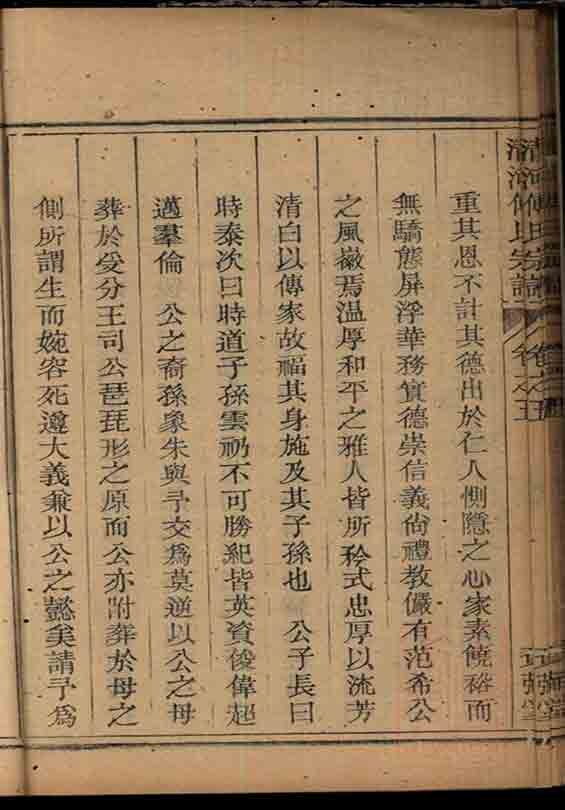 清河傅氏宗譜 卷之五
五㢸堂
重其恩不計其德出於仁人惻隱之心家素饒裕而
無驕態屏浮華務實德崇信義尙禮教儼有范希公
之風徽焉溫厚和平之雅人皆所矜式忠厚以流芳
清白以傳家故福其身施及其子孫也 公子長曰
時泰次曰時道子孫雲礽不可勝紀皆英資俊偉超
邁羣倫 公之裔孫象朱與予交爲莫逆以公之母
葬於受分王司公琵琶形之原而公亦附葬於母之
側所謂生而婉容死遵大義兼以公之懿矣請予爲